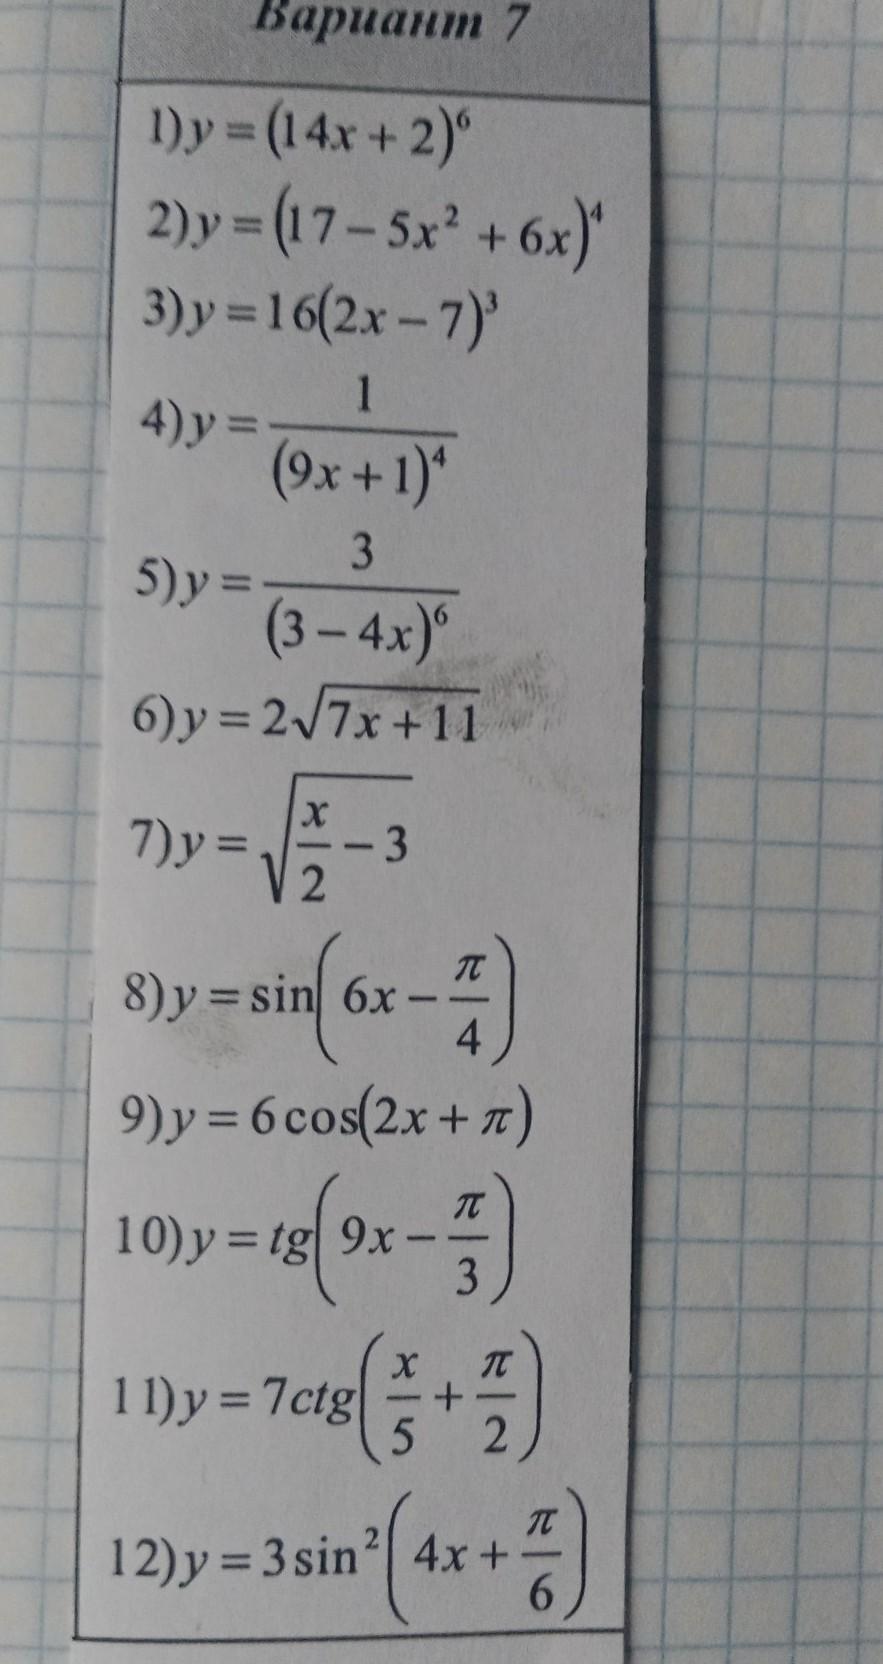 Вариант 7
1) y = (14x + 2)⁶
2) y = (17 − 5x² + 6x)⁴
3) y = 16(2x − 7)³
4) y = 1/(9x + 1)⁴
5) y = 3/(3 − 4x)⁶
6) y = 2√(7x + 11)
7) y = √(x/2 − 3)
8) y = sin(6x − π/4)
9) y = 6 cos(2x + π)
10) y = tg(9x − π/3)
11) y = 7ctg(x/5 + π/2)
12) y = 3 sin²(4x + π/6)